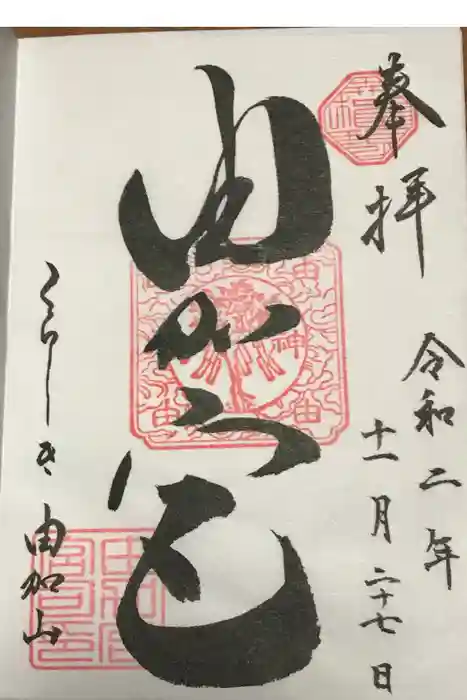 奉拝
令和二年
十一月二十七日
由加
くらしき 由加山